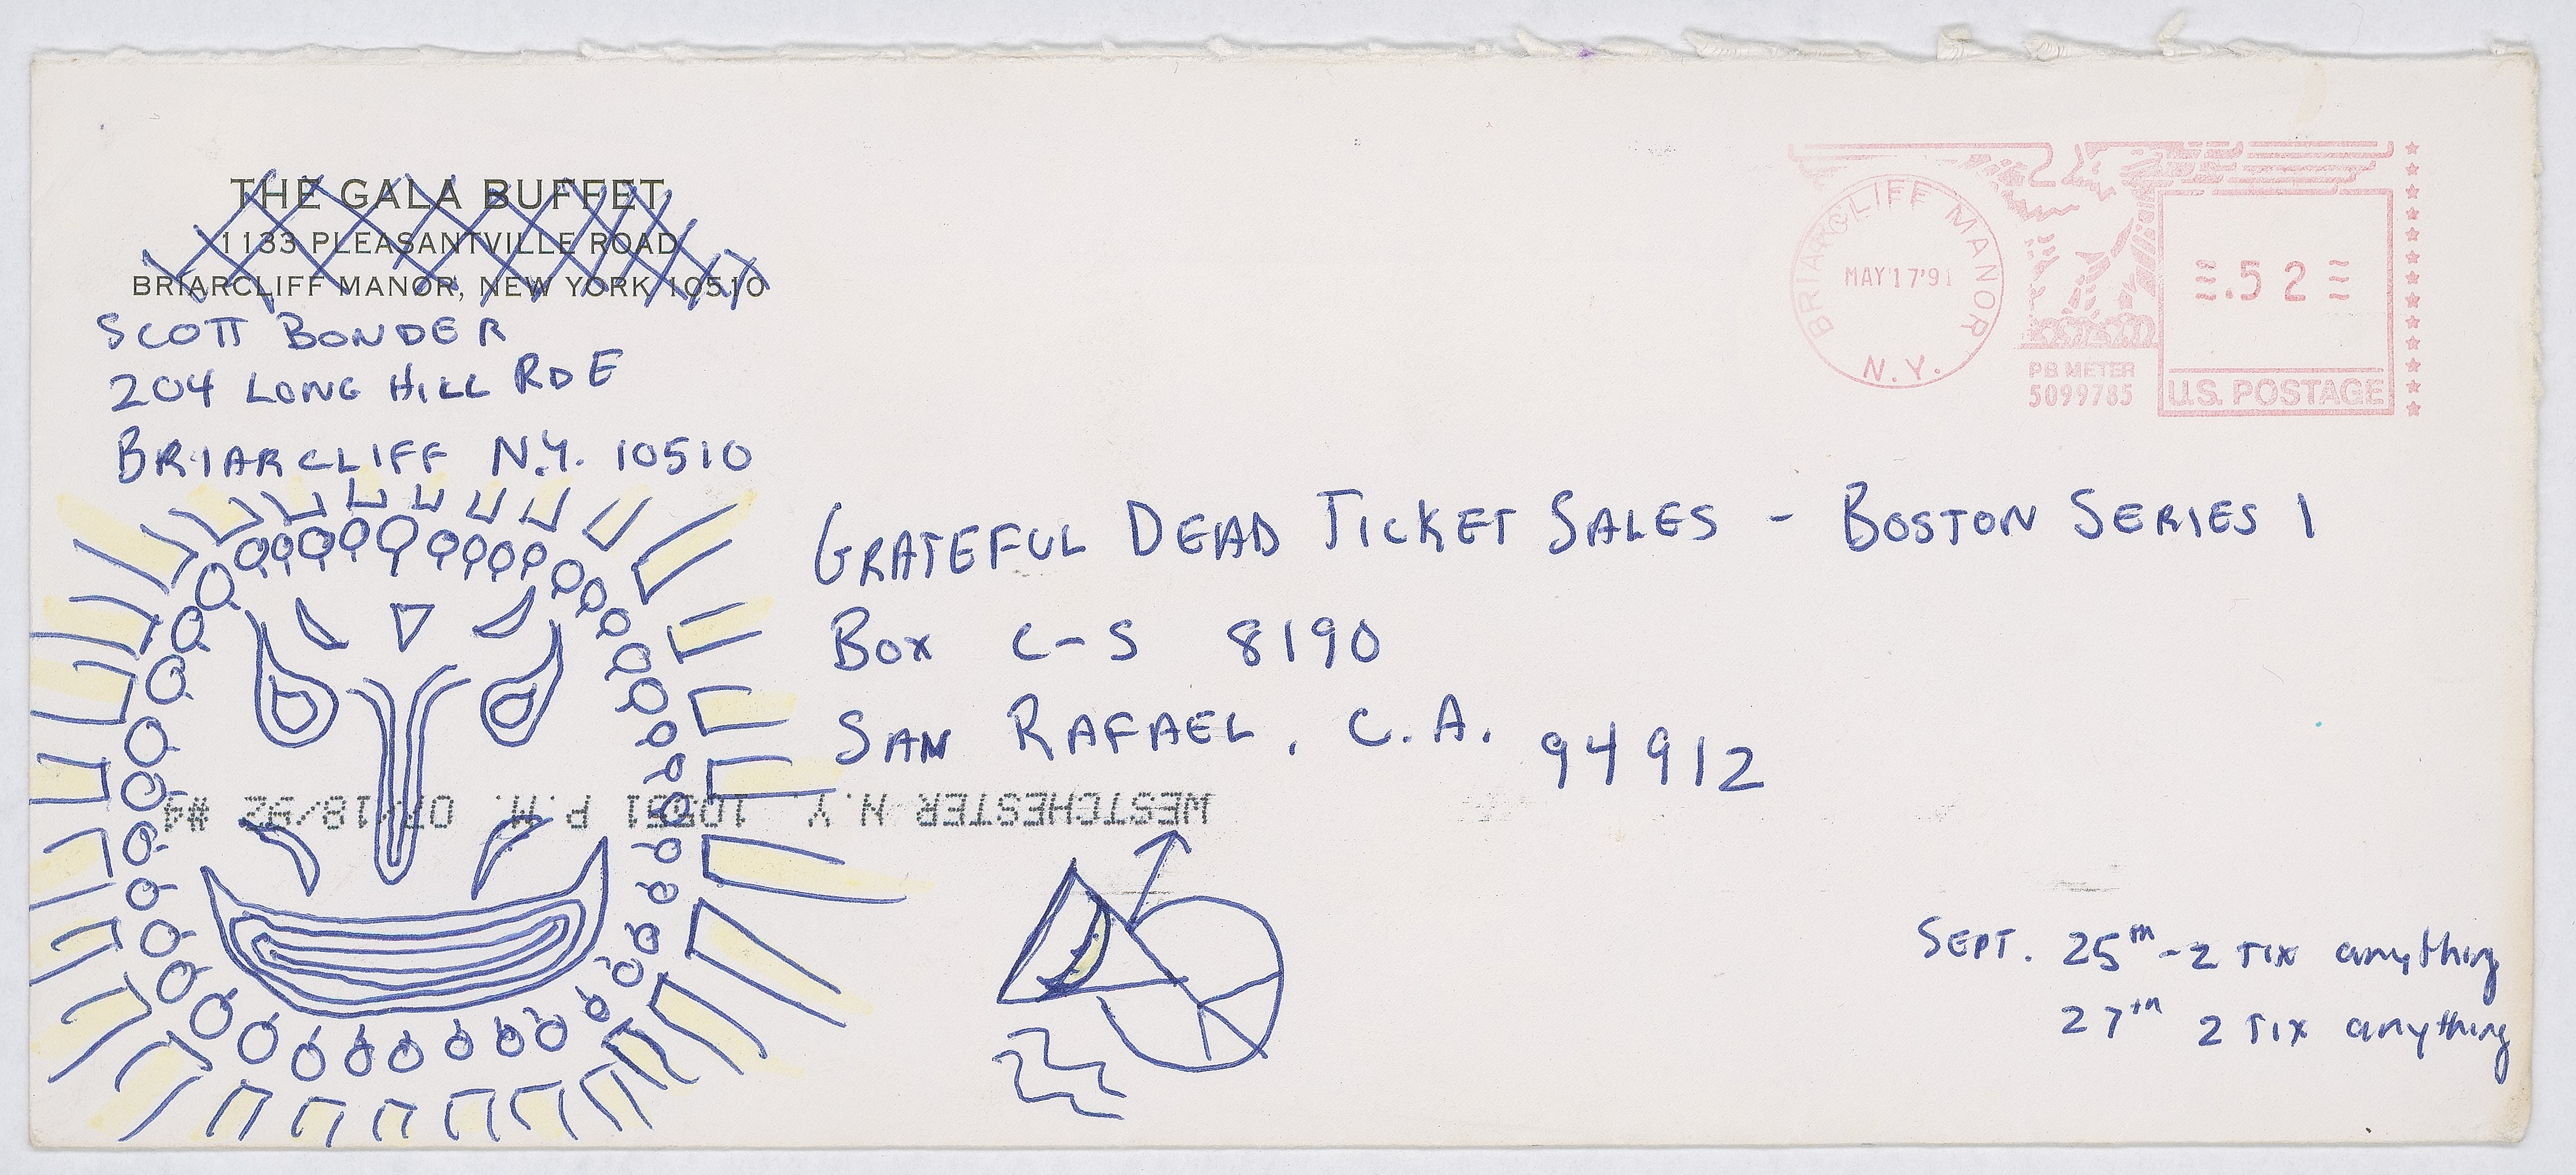 THE GALA BUFFET
1133 PLEASANTVILLE ROAD
BRIARCLIFF MANOR, NEW YORK 10510
SCOTT BONDER
204 LONG HILL RD E
BRIARCLIFF N.Y. 10510
BRIARCLIFF MANOR
MAY 17 '91
N.Y.
PB METER
5099785
.52
U.S. POSTAGE
GRATEFUL DEAD TICKET SALES - BOSTON SERIES 1
BOX C-S 8190
SAN RAFAEL, C.A. 94912
WESTCHESTER N.Y. 10551 P.M. 07/18/92 #4
SEPT. 25th - 2 TIX anything
27th 2 TIX anything